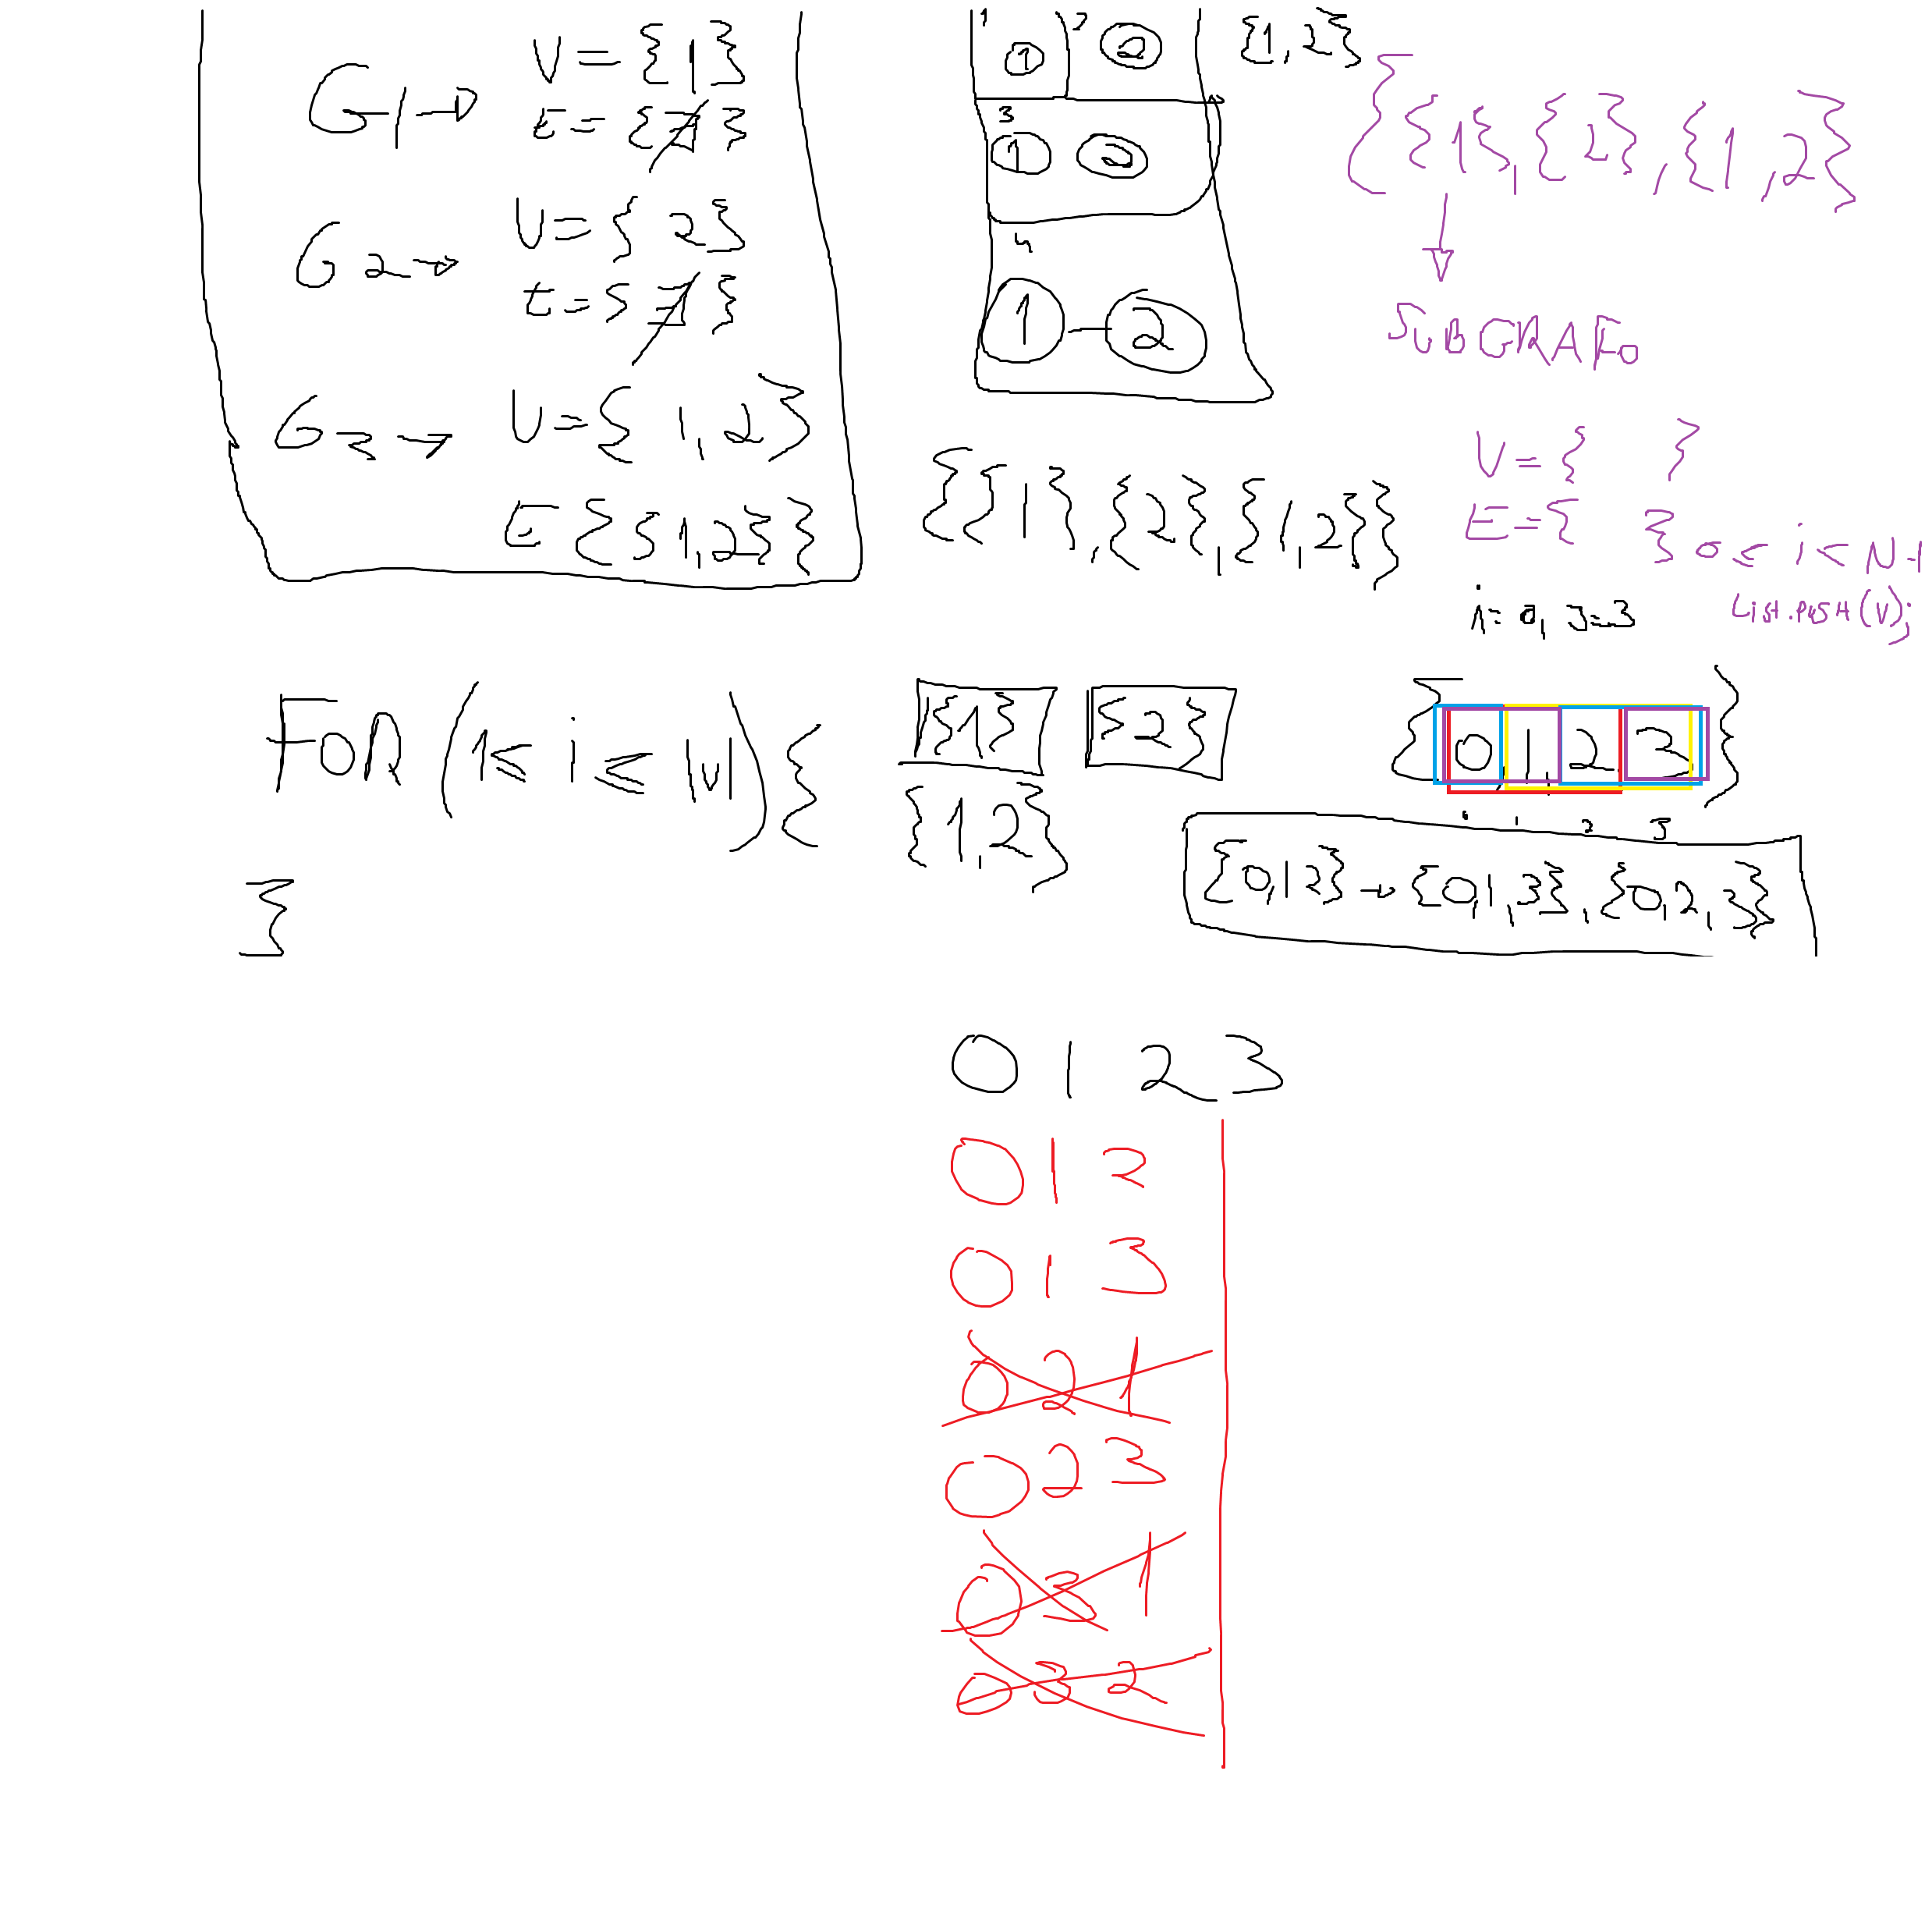 G1→ V={1}
E={∅}
G2→ V={2}
E={∅}
G3→ V={1,2}
E{{1,2}}
1 2 {1,2}
1 2
3
1 2
4
1-2
{{1},{2},{1,2}
↓
SUBGRAFO
{{1},{2},{1,2}}
V={ }
E={ } 0≤i<N-1
LIST.PUSH(V);
i=0, J=3
FOR(1≤i≤|V|){
}
{1} {2}
{1,2}
{0,1,2,3}
0 1 2 3
{0,12}→{0,1,3},{0,2,3}
0 1 2 3
0 1 2
0 1 3
0 2 1
0 2 3
0 3 1
0 3 2